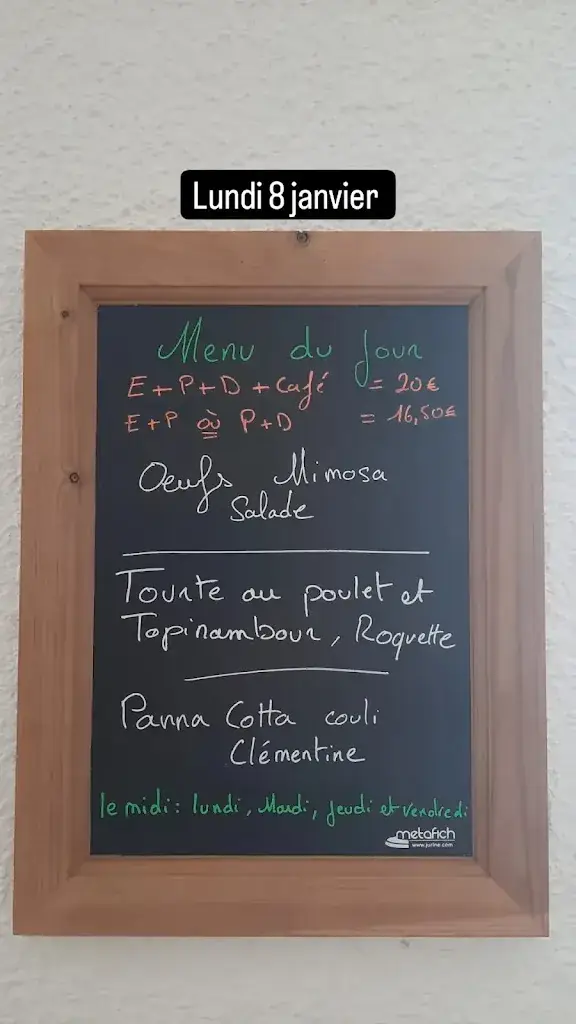 Lundi 8 janvier
Menu du Jour
E+P+D+Café = 20€
E+P où P+D = 16,50€
Oeufs Mimosa
Salade
Tourte au poulet et
Topinambour, Roquette
Panna Cotta couli
Clémentine
le midi: lundi, Mardi, Jeudi et vendredi
metafich
www.jurine.com